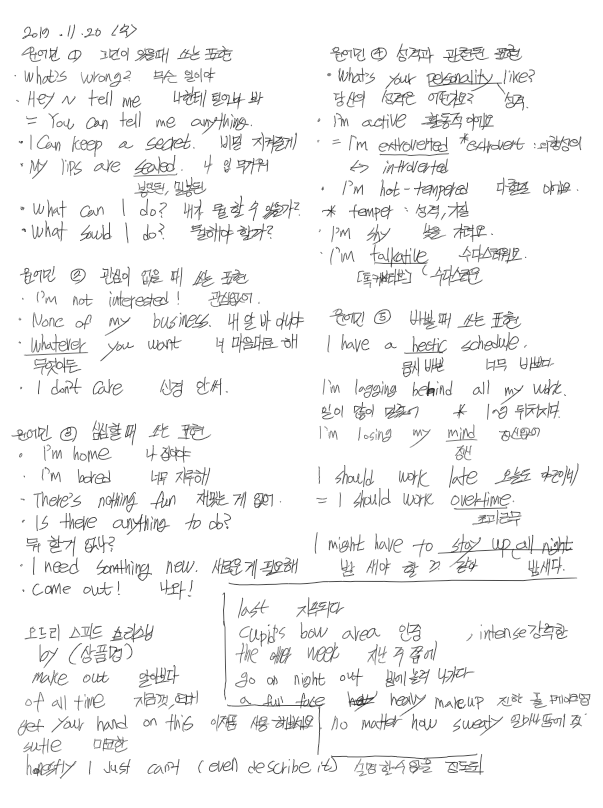 2019. 11. 20 <수>
원어민 ① 고민이 있을때 쓰는 표현
· What's wrong? 무슨 일이야
· Hey ~ tell me 나한테 털어놔 봐
= You can tell me anything.
· I Can keep a secret. 비밀 지켜줄게
· My lips are sealed. 나 입 무거워
봉인된, 밀봉된
· What can I do? 내가 뭘 할 수 있을까?
· What sould I do? 뭘해야 할까?
원어민 ② 관심이 없을 때 쓰는 표현
· I'm not interested! 관심없어.
· None of my business. 내 알 바 아니야
· Whatever you want 너 마음대로 해
무엇이든
· I don't care 신경 안써.
원어민 ③ 심심할때 쓰는 표현
· I'm home 나 집이야
· I'm bored 너무 지루해
· There's nothing fun 재밌는 게 없어.
· Is there anything to do?
뭐 할거 없나?
· I need somthing new. 새로운게 필요해
· Come out! 나와!
원어민 ④ 성격과 관련된 표현
· What's your personality like?
당신의 성격은 어떤가요? 성격
· I'm active 활동적 이에요
· = I'm extroverted *extrovert :외향성의
<-> introverted
· I'm hot-tempered 다혈질 이에요.
* temper : 성격, 기질
· I'm shy 낯을 가려요.
· I'm talkative 수다스러워요.
[톡커티브] 수다스러운
원어민 ⑤ 바쁠때 쓰는 표현
I have a hectic schedule.
몹시 바쁜 너무 바쁘다
I'm lagging behind all my work.
일이 많이 밀렸어 * lag 뒤처지다.
I'm losing my mind 정신없어
정신
I should work late 오늘도 야근이네
= I should work overtime.
초과근무
I might have to stay up all night
밤 새야 할 것 같아 밤새다.
오드리 스피드
by (상품명)
make out 알아보다
of all time 지금껏, 역대
get your hand on this 이제품 사용 해보세요
sutle 미묘한
honestly I just can't (even describe it) 설명할수없을 정도로
last 지속되다
cupid's bow area 인중 , intense 강력한
the week 지난 주 쯤에
go on night out 밤에 놀러 나가다
a full face heavy makeup 진한 풀 메이크업
no matter how sweaty 얼마나 땀에 젖